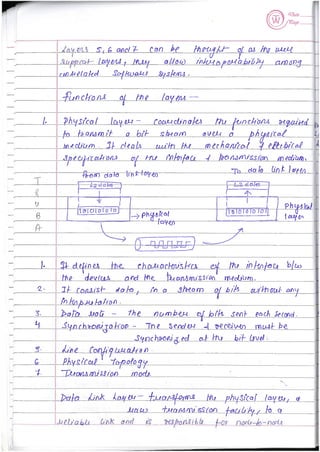 Date
Page
Layers 5, 6 and 7 can be thought of as the user
support layers, they allow interoperability among
unrelated software systems.
functions of the layers —
1. Physical layer — Coordinates the functions required
to transmit a bit stream over a physical
medium. It deals with the mechanical & electrical
specifications of the interface & transmission medium.
from data link layer
To data link layer
L2 data
L2 data
10101010
10101010
physical
layer
Physical
layer
T
R
U
B
A
1. It defines the characteristics of the interface b/w
the devices and the transmission medium.
2. It consist data, in a stream of bits without any
interpretation.
3. Data rate - The number of bits sent each second.
4 Synchronization - The sender & receiver must be
synchronized at the bit level.
5. Line Configuration
6 Physical Topology
7. Transmission mode
Data Link Layer - transforms the physical layer, a
raw transmission facility, to a
reliable link and is responsible for node-to-node